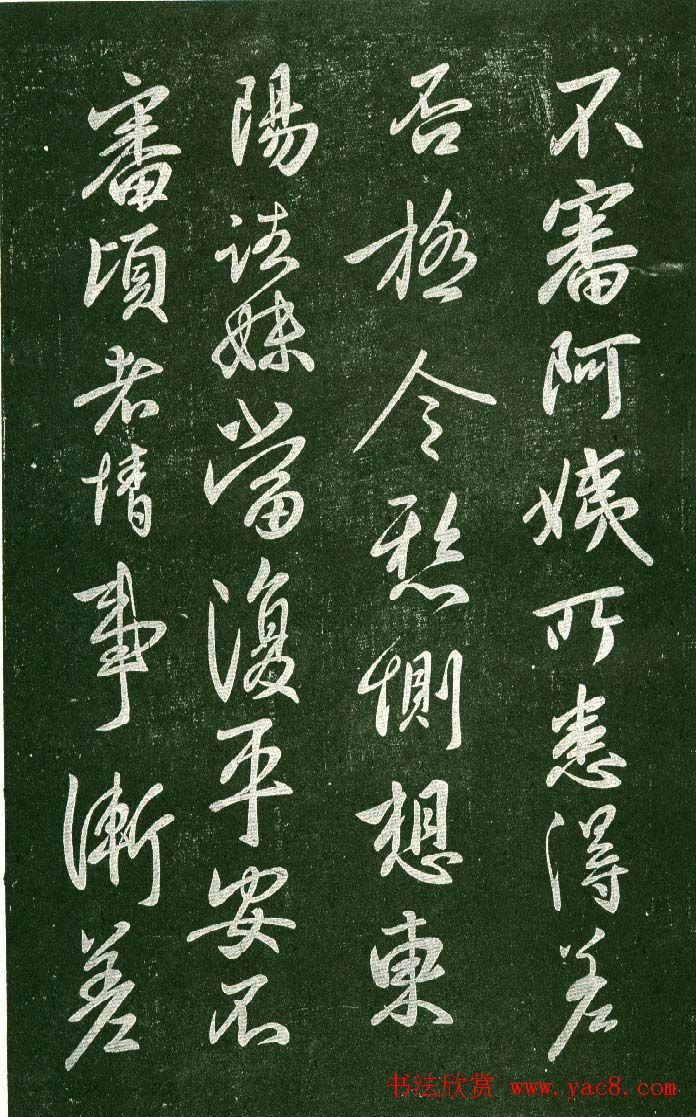 不審阿姨所患得差
否極令惻想東
陽諸妹當復平安不
審頃者情事漸差
书法欣赏 www.yac8.com